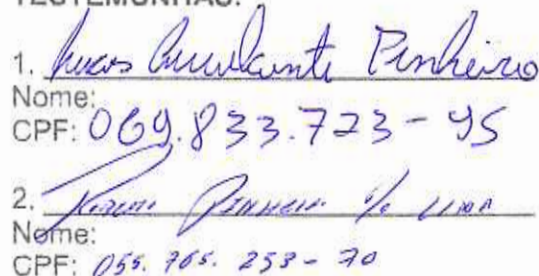 TESTEMUNHAS:
1. Lucas Cavalcante Pinheiro
Nome:
CPF: 069.833.723-45
2. Pinheiro
Nome:
CPF: 055.765.253-70